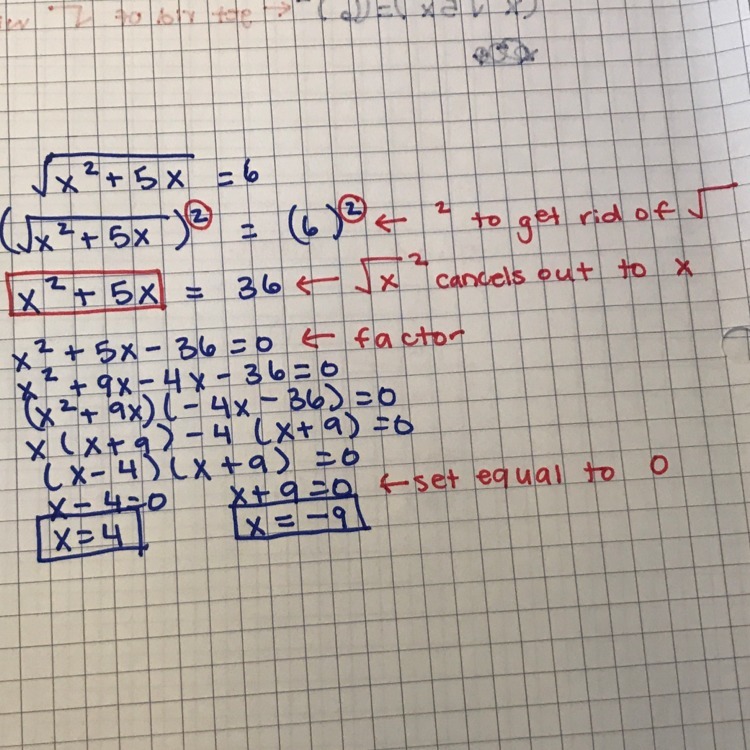 √x² + 5x = 6
(√x² + 5x)² = (6)² ← ² to get rid of √
x² + 5x = 36 ← √x² cancels out to x
x² + 5x - 36 = 0 ← factor
x² + 9x - 4x - 36 = 0
(x² + 9x)(-4x - 36) = 0
x(x+9) - 4(x+9) = 0
(x-4)(x+9) = 0
x-4=0 x+9=0 ← set equal to 0
x=4 x=-9